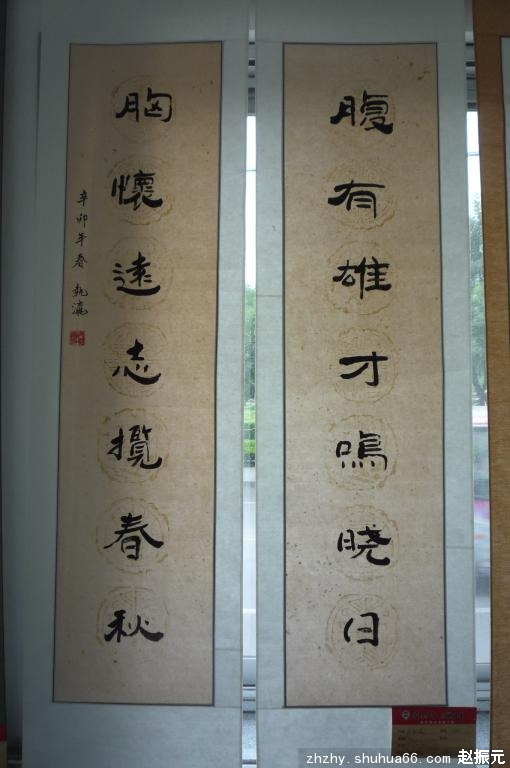 腹有雄才鳴晓日
胸懷遠志攬春秋
辛卯年春 執瀛
zhzhy.shuhua66.com 赵振元